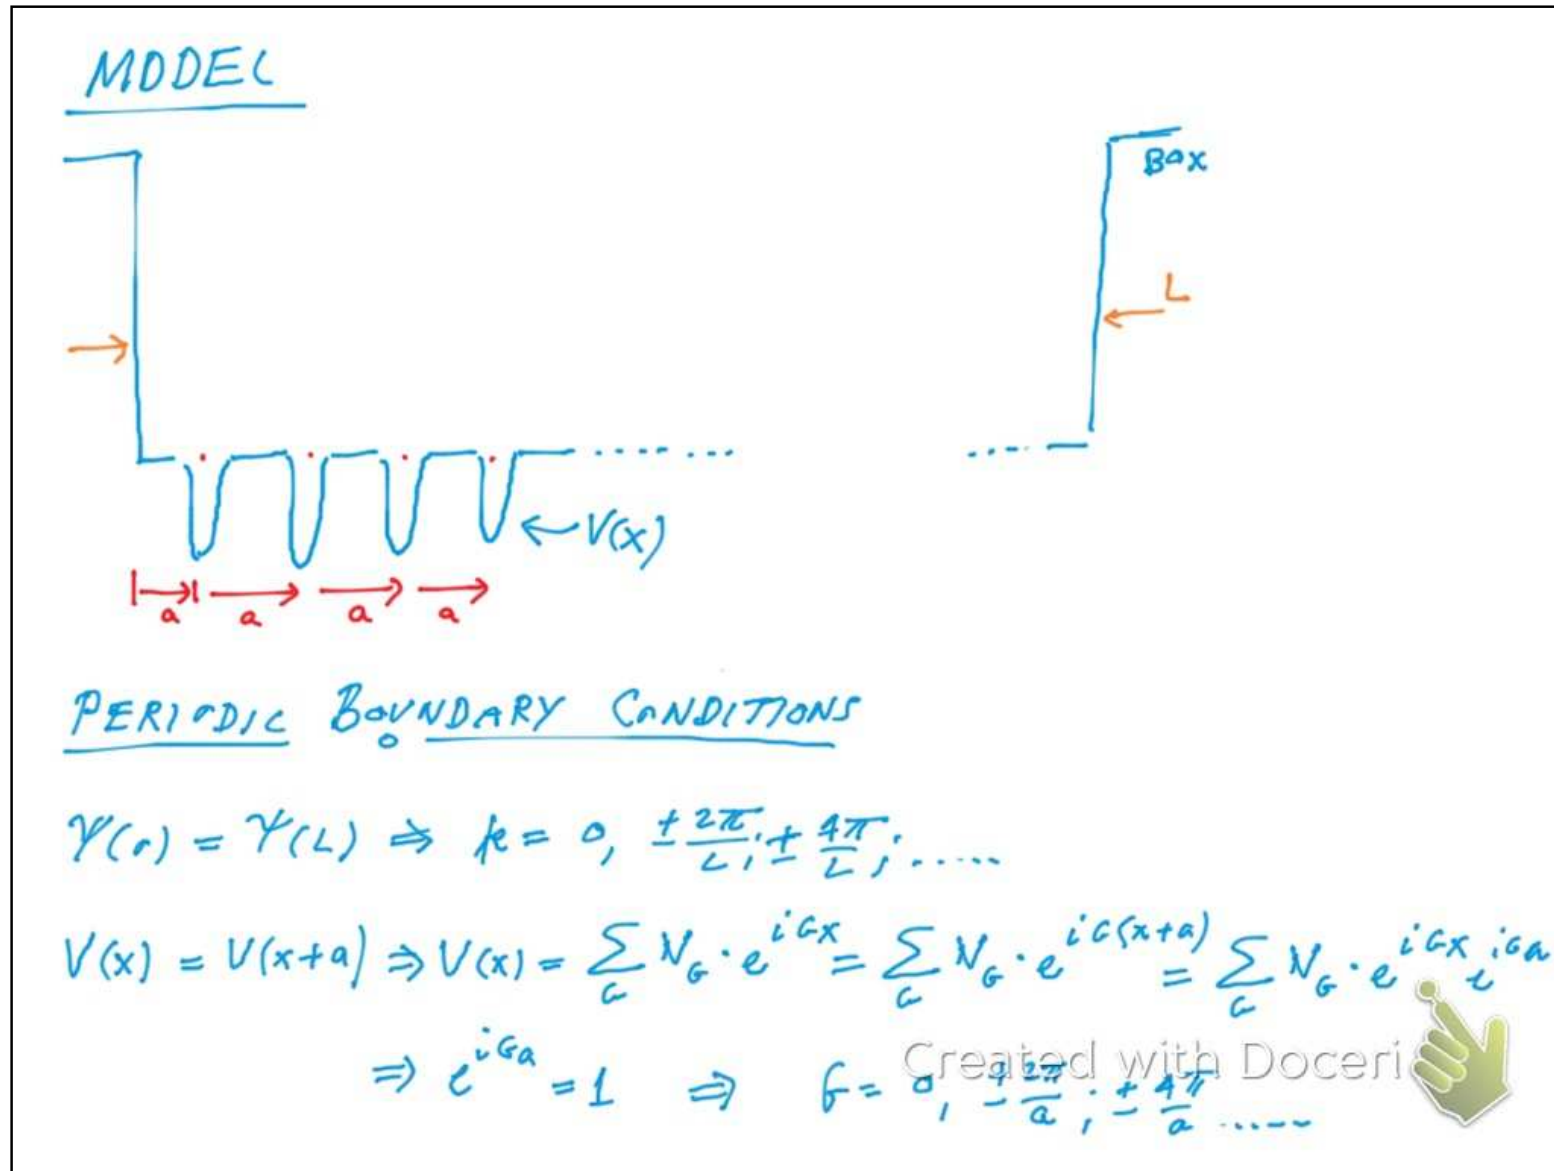 MODEL
BOX
L
V(x)
a a a a
PERIODIC BOUNDARY CONDITIONS
Ψ(0) = Ψ(L) ⇒ k = 0, ± 2π/L; ± 4π/L; .....
V(x) = V(x+a) ⇒ V(x) = ∑_G V_G · e^{iGx} = ∑_G V_G · e^{iG(x+a)} = ∑_G V_G · e^{iGx} e^{iGa}
⇒ e^{iGa} = 1 ⇒ G = 0, ± 2π/a; ± 4π/a .....
Created with Doceri